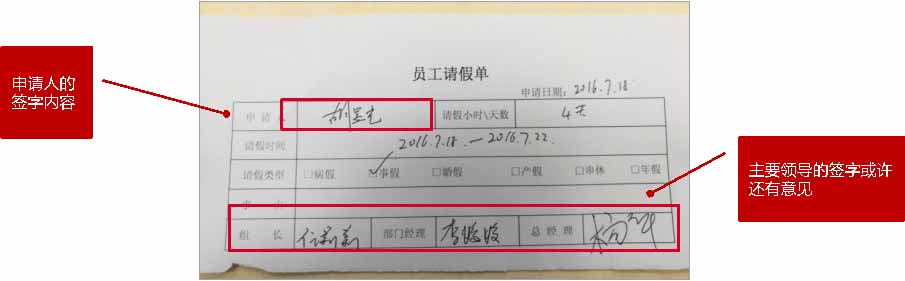 员工请假单
申请日期：2016.7.18
申请人的
签字内容
申请人 请假小时\天数 4天
请假时间 2016.7.18.—2016.7.22.
请假类型 □病假 □事假 □婚假 □产假 □串休 □年假
主要领导的签字或许
还有意见
事 由
组 长 部门经理 李 总经理